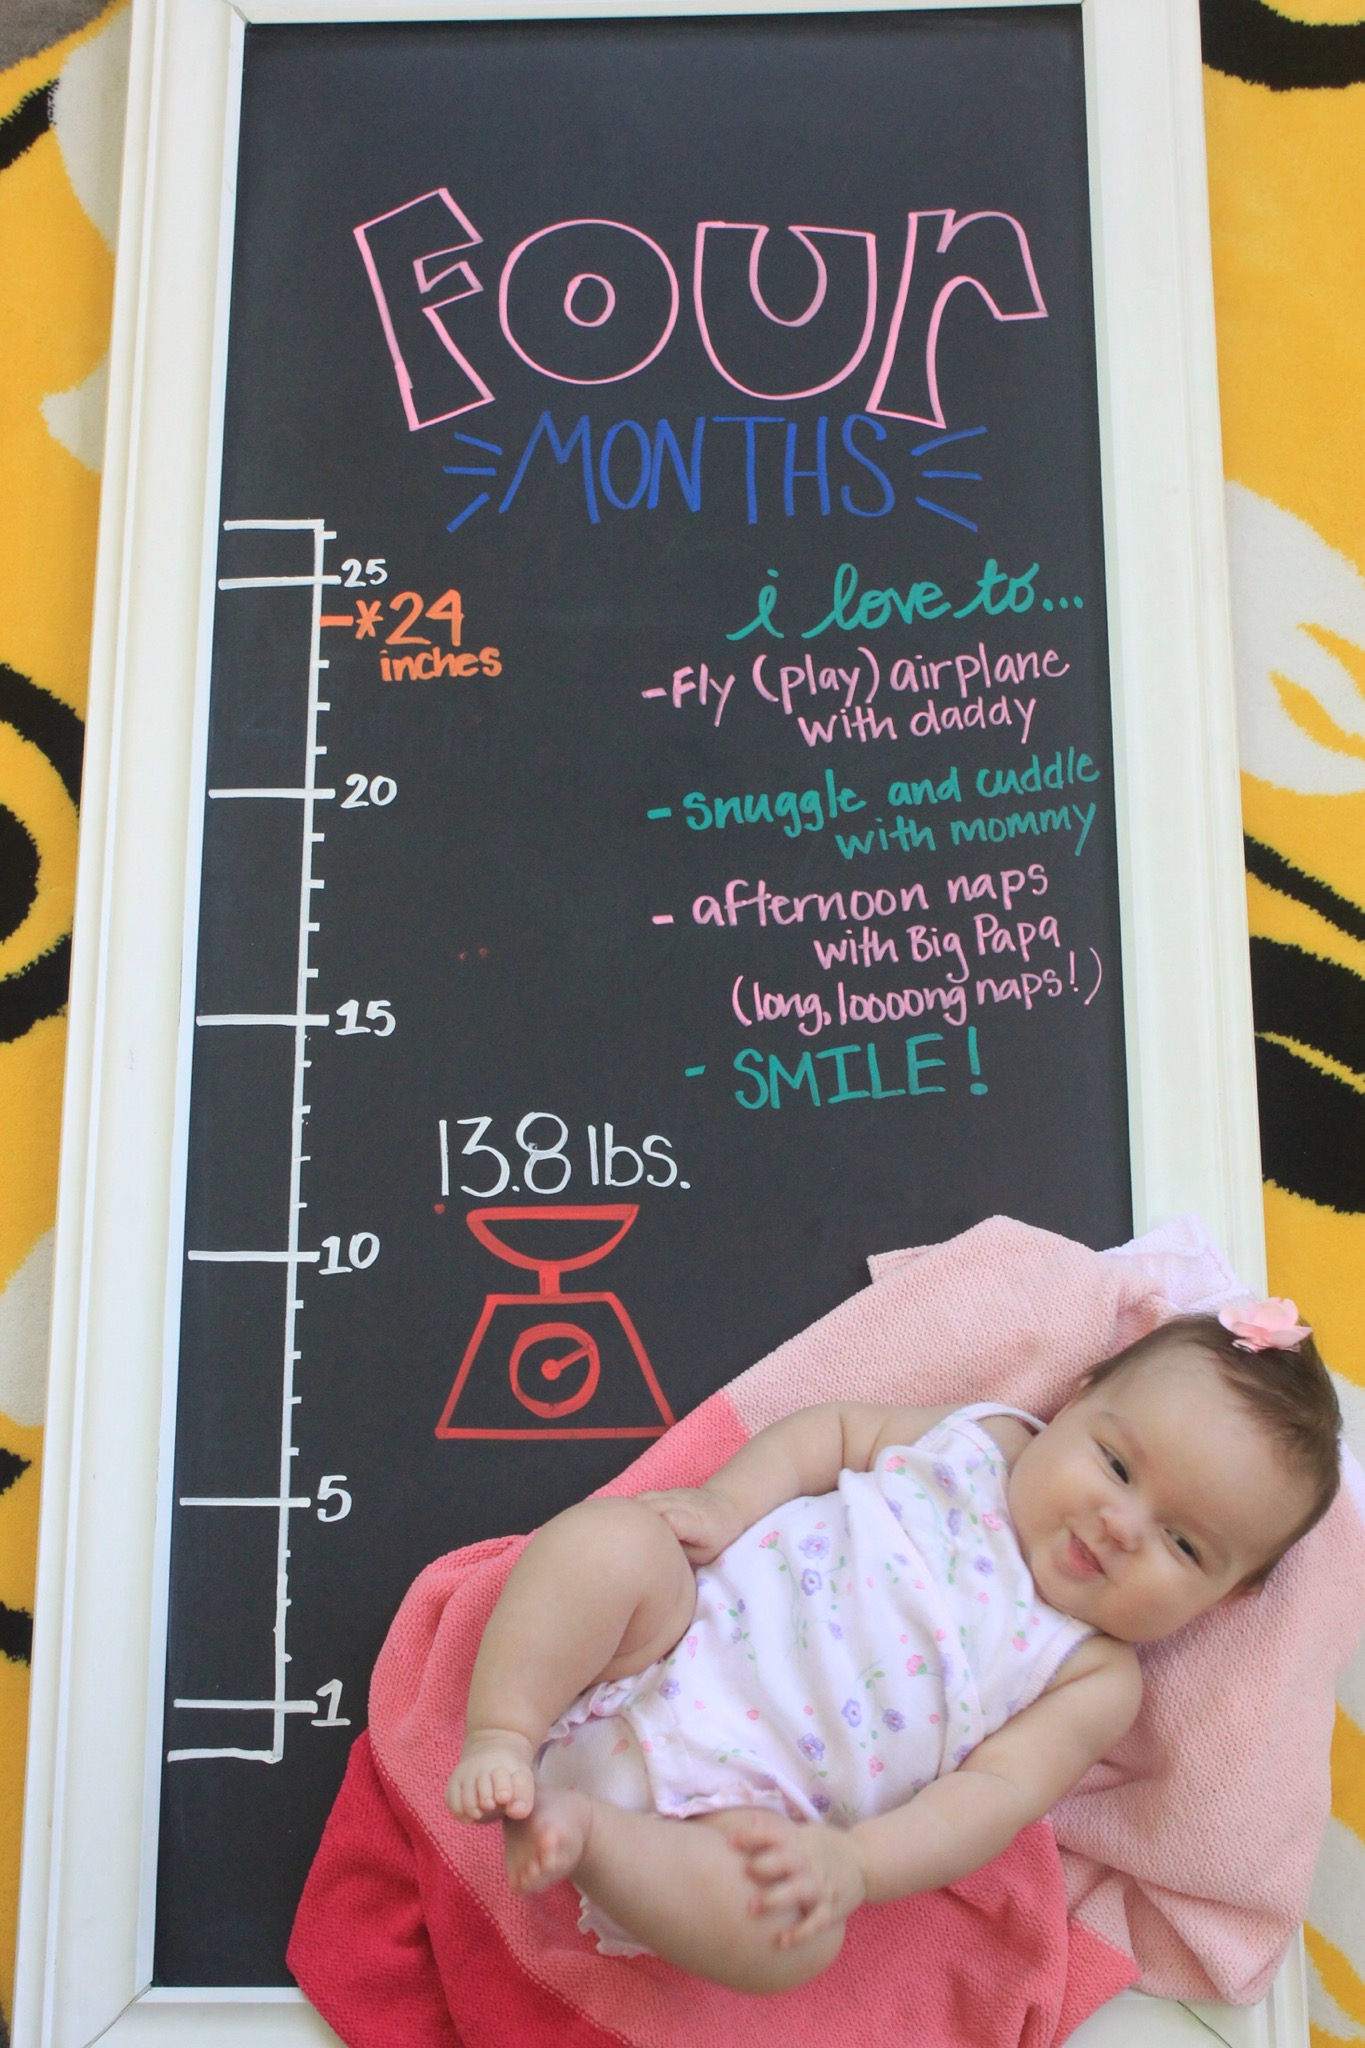 Four
MONTHS
25
*24
inches
20
15
10
5
1
i love to...
-Fly (play) airplane
with daddy
-snuggle and cuddle
with mommy
- afternoon naps
with Big Papa
(long, loooong naps!)
- SMILE!
13.8 lbs.